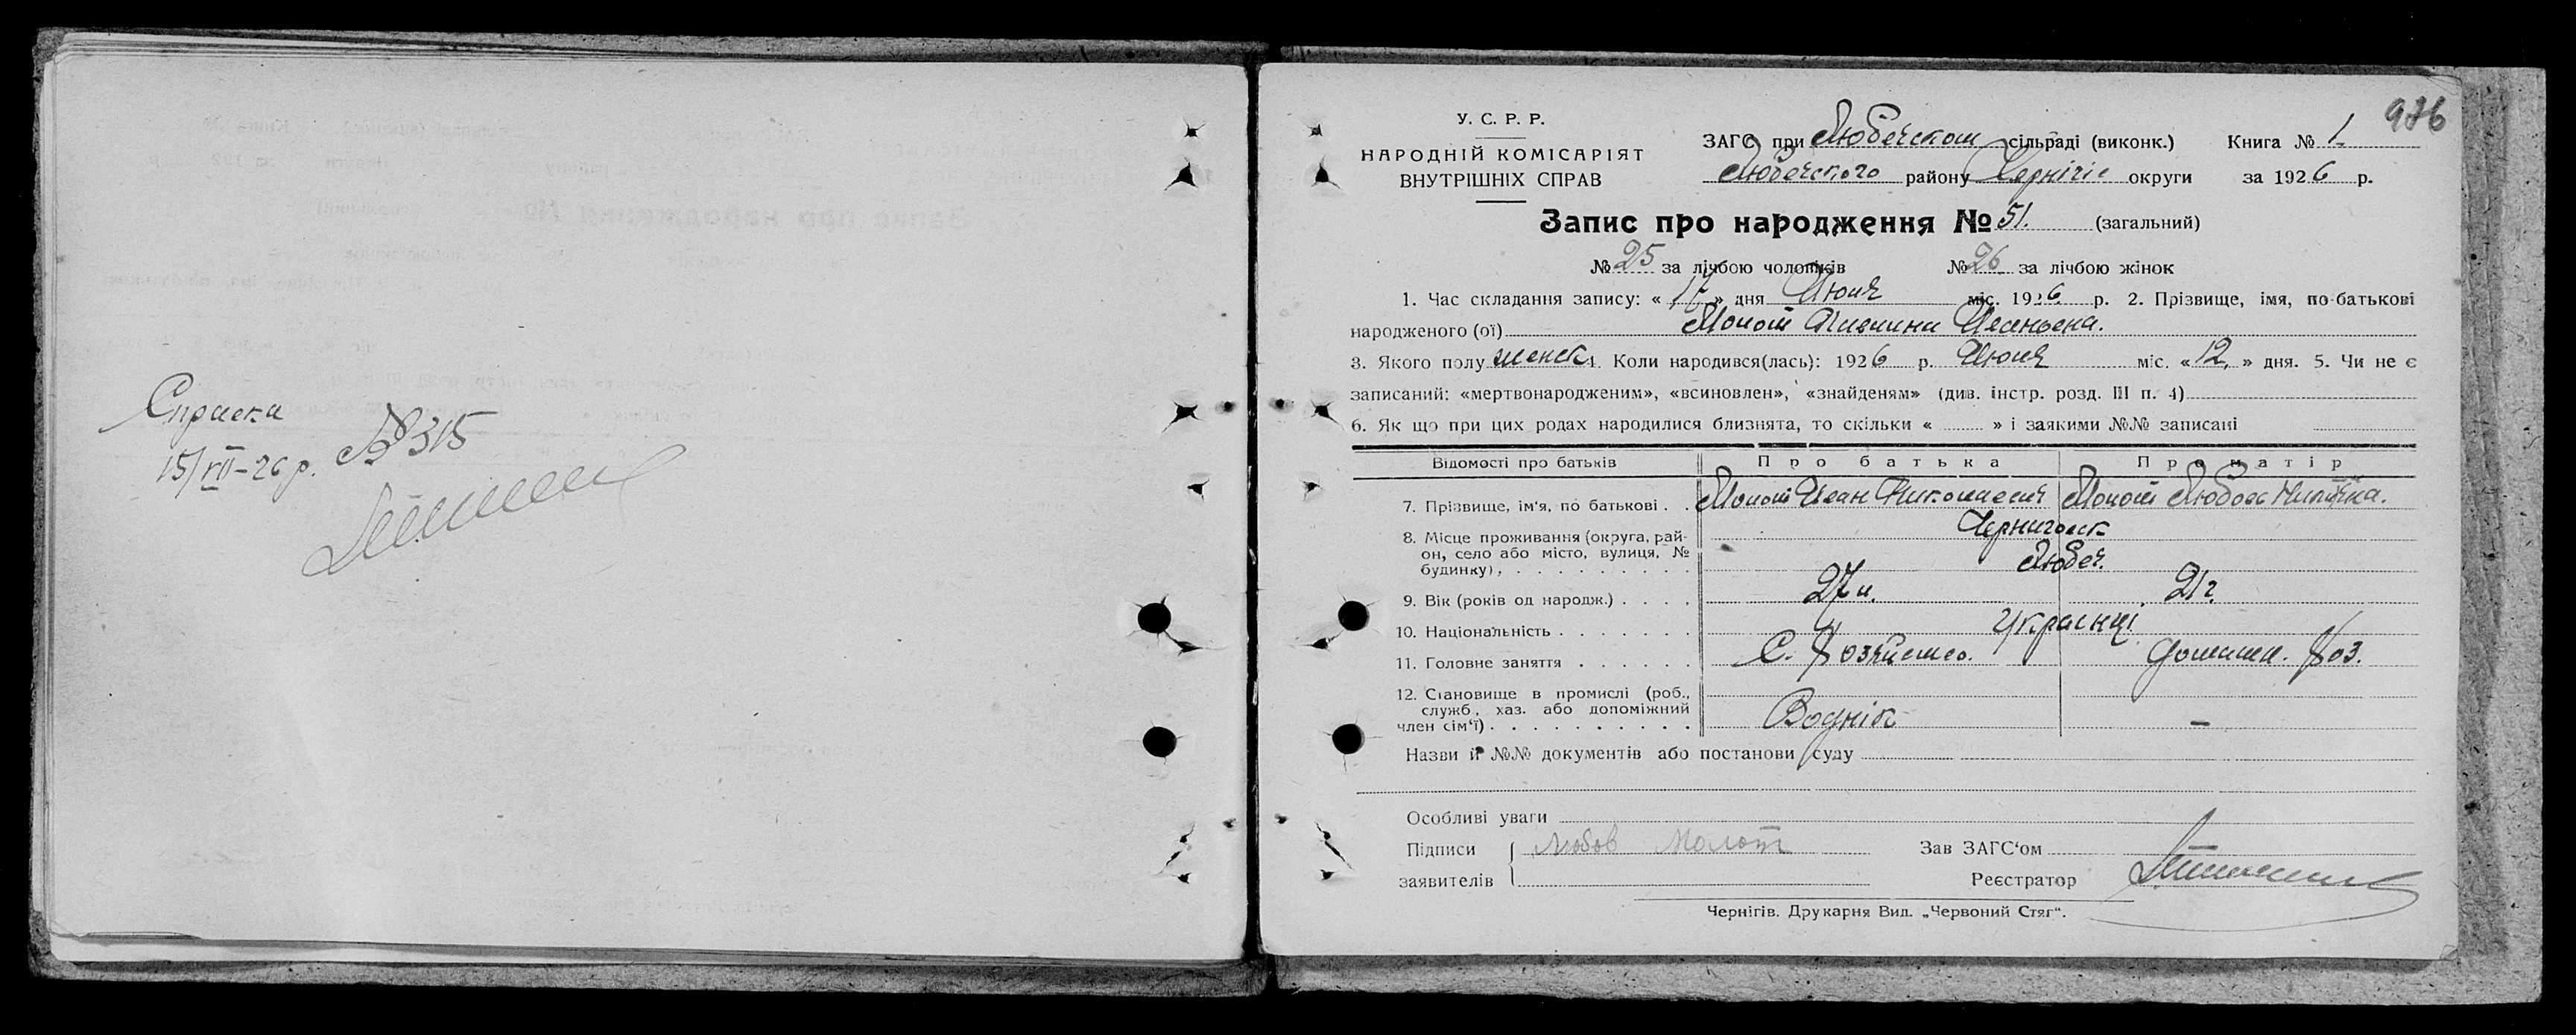 Справка
15/VII-26 р. № 315
936
У. С. Р. Р.
НАРОДНІЙ КОМІСАРІЯТ
ВНУТРІШНІХ СПРАВ
ЗАГС при Любечском сільраді (виконк.) Книга № 1
Любечского району Чернігів округи за 1926 р.
Запис про народження № 51. (загальний)
№ 25 за лічбою чоловіків № 26 за лічбою жінок
1. Час складання запису: « 17 » дня Июня міс. 1926 р. 2. Прізвище, імя, по-батькові
народженого (ої) Молот Ивановна.
3. Якого полу женск 4. Коли народився(лась): 1926 р. Июня міс. « 12 » дня. 5. Чи не є
записаний: «мертвонародженим», «всиновлен», «знайденям» (див. інстр. розд. III п. 4)
6. Як що при цих родах народилися близнята, то скільки « » і заякими №№ записані
Відомості про батьків Про батька Про матір
7. Прізвище, ім'я, по батькові . . Молот Иван Николаевич Молот Любовь
8. Місце проживання (округа, рай- Черниговск
он, село або місто, вулиця, № Любеч.
будинку), . . . . . . . . .
9. Вік (років од народж.) . . . . 27 л. 21 г.
10. Національність . . . . . . . Украінці
11. Головне заняття . . . . . . С. Хозяйство. Домашн. Хоз.
12. Становище в промислі (роб.,
служб., хаз. або допоміжний
член сім'ї) . . . . . . . . . —
Назви й №№ документів або постанови суду
Особливі уваги
Підписи Любов Молот Зав ЗАГС'ом
заявителів Реєстратор
Чернігів. Друкарня Вид. „Червоний Стяг".